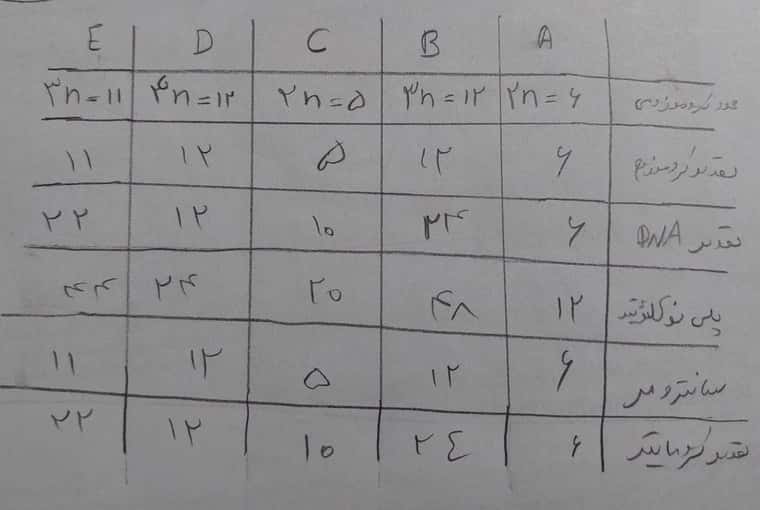 A B C D E
عدد کروموزومی ۲n=۶ ۳n=۱۲ ۲n=۵ ۴n=۱۲ ۳n=۱۱
تعداد کروموزوم ۶ ۱۲ ۵ ۱۲ ۱۱
تعداد DNA ۶ ۲۴ ۱۰ ۱۲ ۲۲
پلی نوکلئوتید ۱۲ ۴۸ ۲۰ ۲۴ ۴۴
سانترومر ۶ ۱۲ ۵ ۱۲ ۱۱
تعداد کروماتید ۶ ۲٤ ۱۰ ۱۲ ۲۲